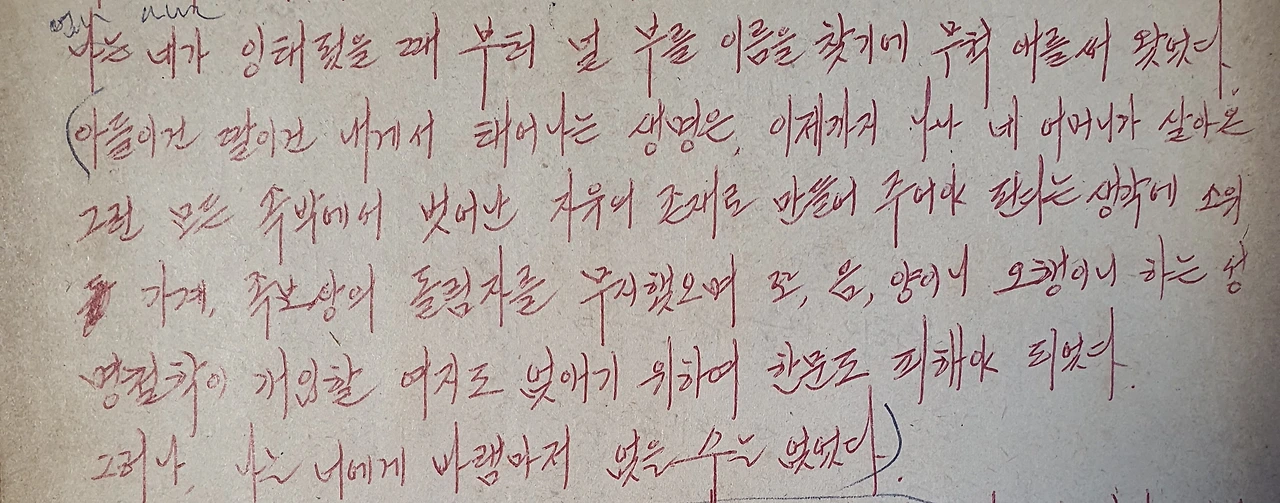 나는 네가 잉태됬을 때 부터 널 부를 이름을 찾기에 무척 애를써 왔었다.
(아들이건 딸이건 내게서 태어나는 생명은, 이제까지 나나 네 어머니가 살아온
그런 모든 속박에서 벗어난 자유의 존재로 만들어 주어야 된다는 생각에 소위
가계, 족보상의 돌림자를 무시했으며 또, 음, 양이니 오행이니 하는 성
명철학이 개입할 여지도 없애기 위하여 한문도 피해야 되었다.
그러나, 나는 너에게 바램마저 없을 수는 없었다.)